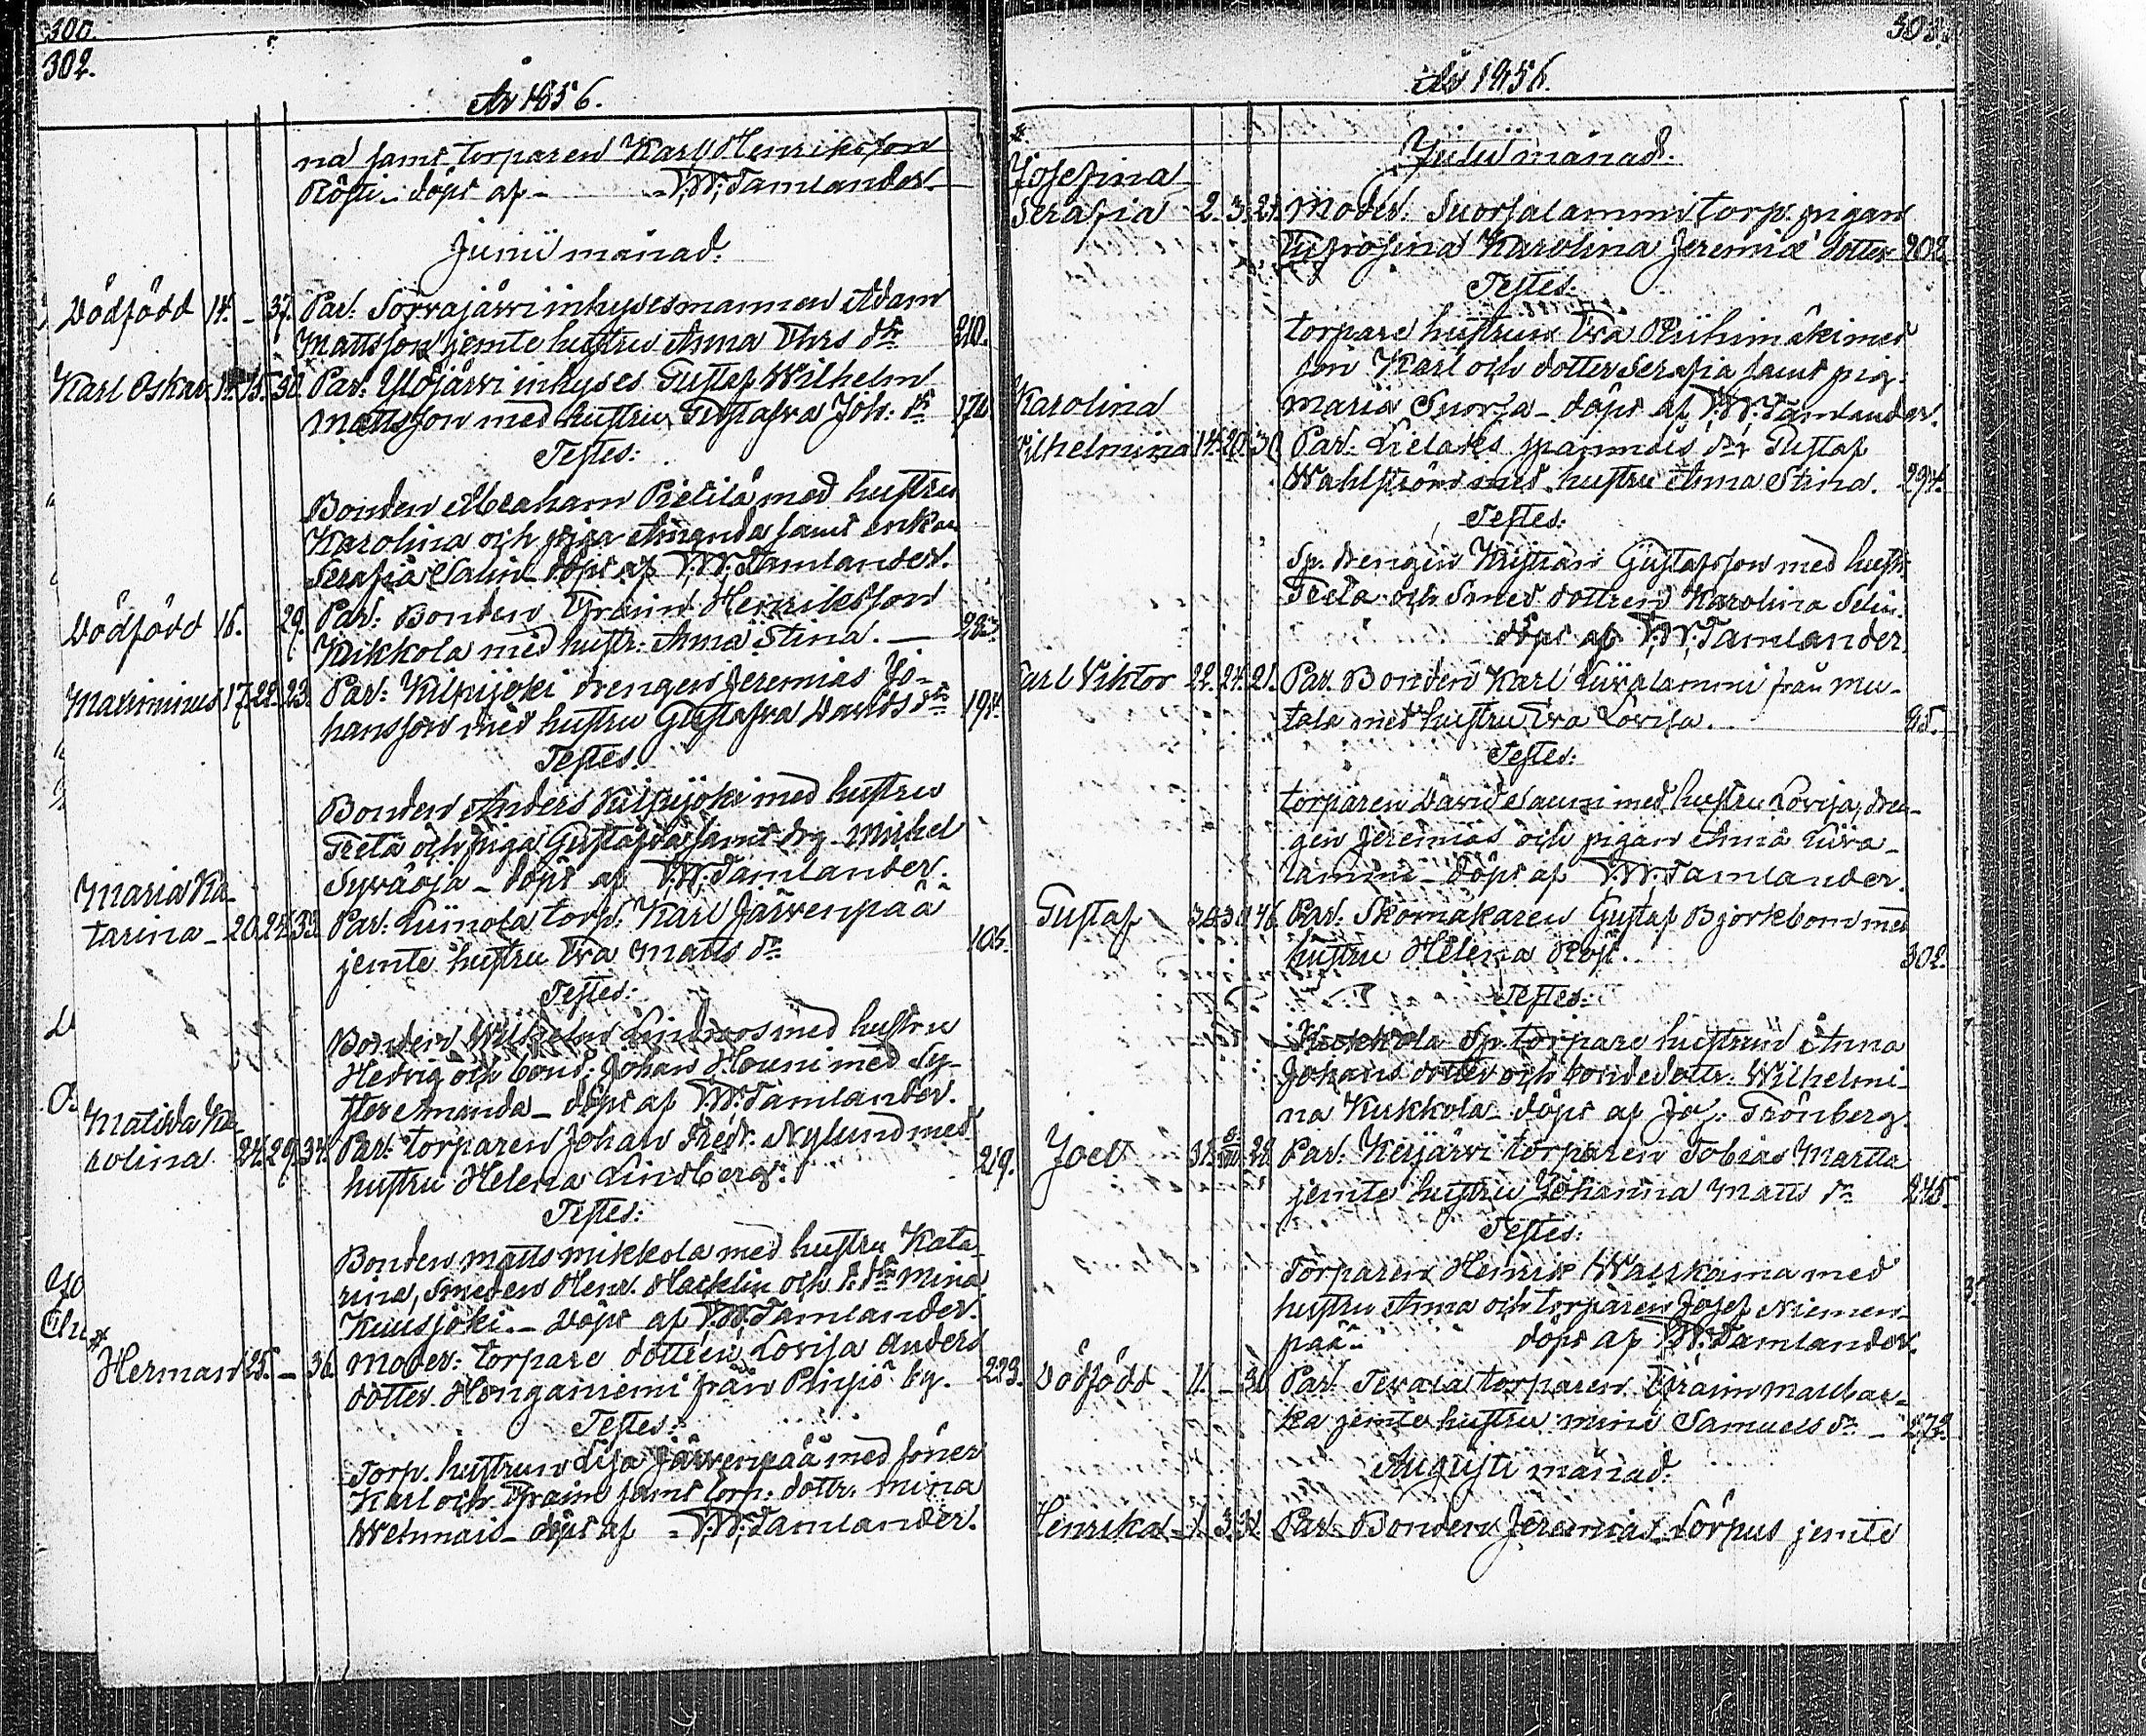 300.
302.
År 1856.
na samt torparen Karl Henriksson
döpt af - V. W. Tamlander.
Junii månad.
Dödfödd 14. - 37. Par: Sorvajärvi inhysesmannen Adam
Mattsson jemte hustru Anna Thrs dr 210.
Karl Oskar 14. 15. 30. Par: Ylöjärvi inhyses Gustaf Wilhelm
Mattsson med hustru Gustafva Joh: dr 170
Testes:
Bonden Abraham Pietilä med hustru
Karolina och piga Amanda samt enkan
Serafia Salin - döpt af V. W. Tamlander.
Dödfödd 16. 29. Par: Bonden Efraim Henriksson
Kukkola med hustr: Anna Stina. - 283.
Maximinus 17. 22. 23. Par: Kilpijoki drengen Jeremias Jo-
hansson med hustru Gustafva Davids dr 194.
Testes:
Bonden Anders Kilpijoki med hustru
Greta och piga Gustafva samt drg Mikel
Syväoja - döpt af V. W. Tamlander.
Maria Ka-
tarina - 20. 24. 33. Par: Liinola torp: Karl Järvenpää
jemte hustru Eva Matts dr 106.
Testes:
Bonden Wilhelm Lindroos med hustru
Hedvig och bond: Johan Houni med Sy-
ster Amanda - döpt af V. W. Tamlander.
Matilda Ka-
rolina 24. 29. 34. Par: torparen Johan Fredr: Nylund med
hustru Helena Lindberg. 219.
Testes:
Bonden Matts Mikkola med hustru Kata-
rina, Smeden Henr. Hacklin och b. dr Mina
Kuusjoki. - döpt af V. W. Tamlander.
Herman 25. - 36. Moder: torpare dottren Lovisa Anders
dotter Honganiemi från Pinsiö by. 223.
Testes:
Torp. hustrun Lisa Järvenpää med söner
Karl och Efraim samt torp: dottr: Mina
Wehmais - döpt af V. W. Tamlander.
303.
År 1856.
Julii månad.
Josefina
Serafia 2. 3. 21. Moder: Suorsalammi torp. pigan
Eufrosina Karolina Jeremiæ dotter 202
Testes:
torpare hustrun Eva Riihimäki med
son Karl och dotter Serafia samt pig.
Maria Suorsa - döpt af V. W. Tamlander.
Karolina
Wilhelmina 14. 20. 30. Par: Lielaks Gustaf
Wahlström med hustru Anna Stina. 294.
Testes:
Sp. drengen Kristian Gustafsson med hustr:
Greta och Smed dottren Karolina Selin.
döpt af V. W. Tamlander.
Karl Viktor 22. 24. 21. Par. Bonden Karl Liuvalammi från Mu-
tala med hustru Eva Lovisa. 95.
Testes:
torparen David Sauni med hustru Lovisa, dren-
gen Jeremias och pigan Anna Liuva-
lammi - döpt af V. W. Tamlander.
Gustaf 30. 30. 46. Par: Skomakaren Gustaf Björkbom med
hustru Helena Rost. 302.
Testes:
Kukkola Sp. torpare hustrun Anna
Johans dotter och bondedottr: Wilhelmi-
na Kukkola - döpt af Grönberg.
Joel 31. 22 Par: Keijärvi torparen Tobias Martta
jemte hustru Johanna Matts dr 245.
Testes:
Torparen Henrik Waiskama med
hustru Anna och torparen Josef Niemen-
pää döpt af V. W. Tamlander.
Dödfödd 11. - 31. Par: Tevala torparen Efraim
jemte hustru Mina Samuels dr - 272.
Augusti månad.
Henrika 1. 3. 32. Par. Bonden Jeremias Lörpus jemte